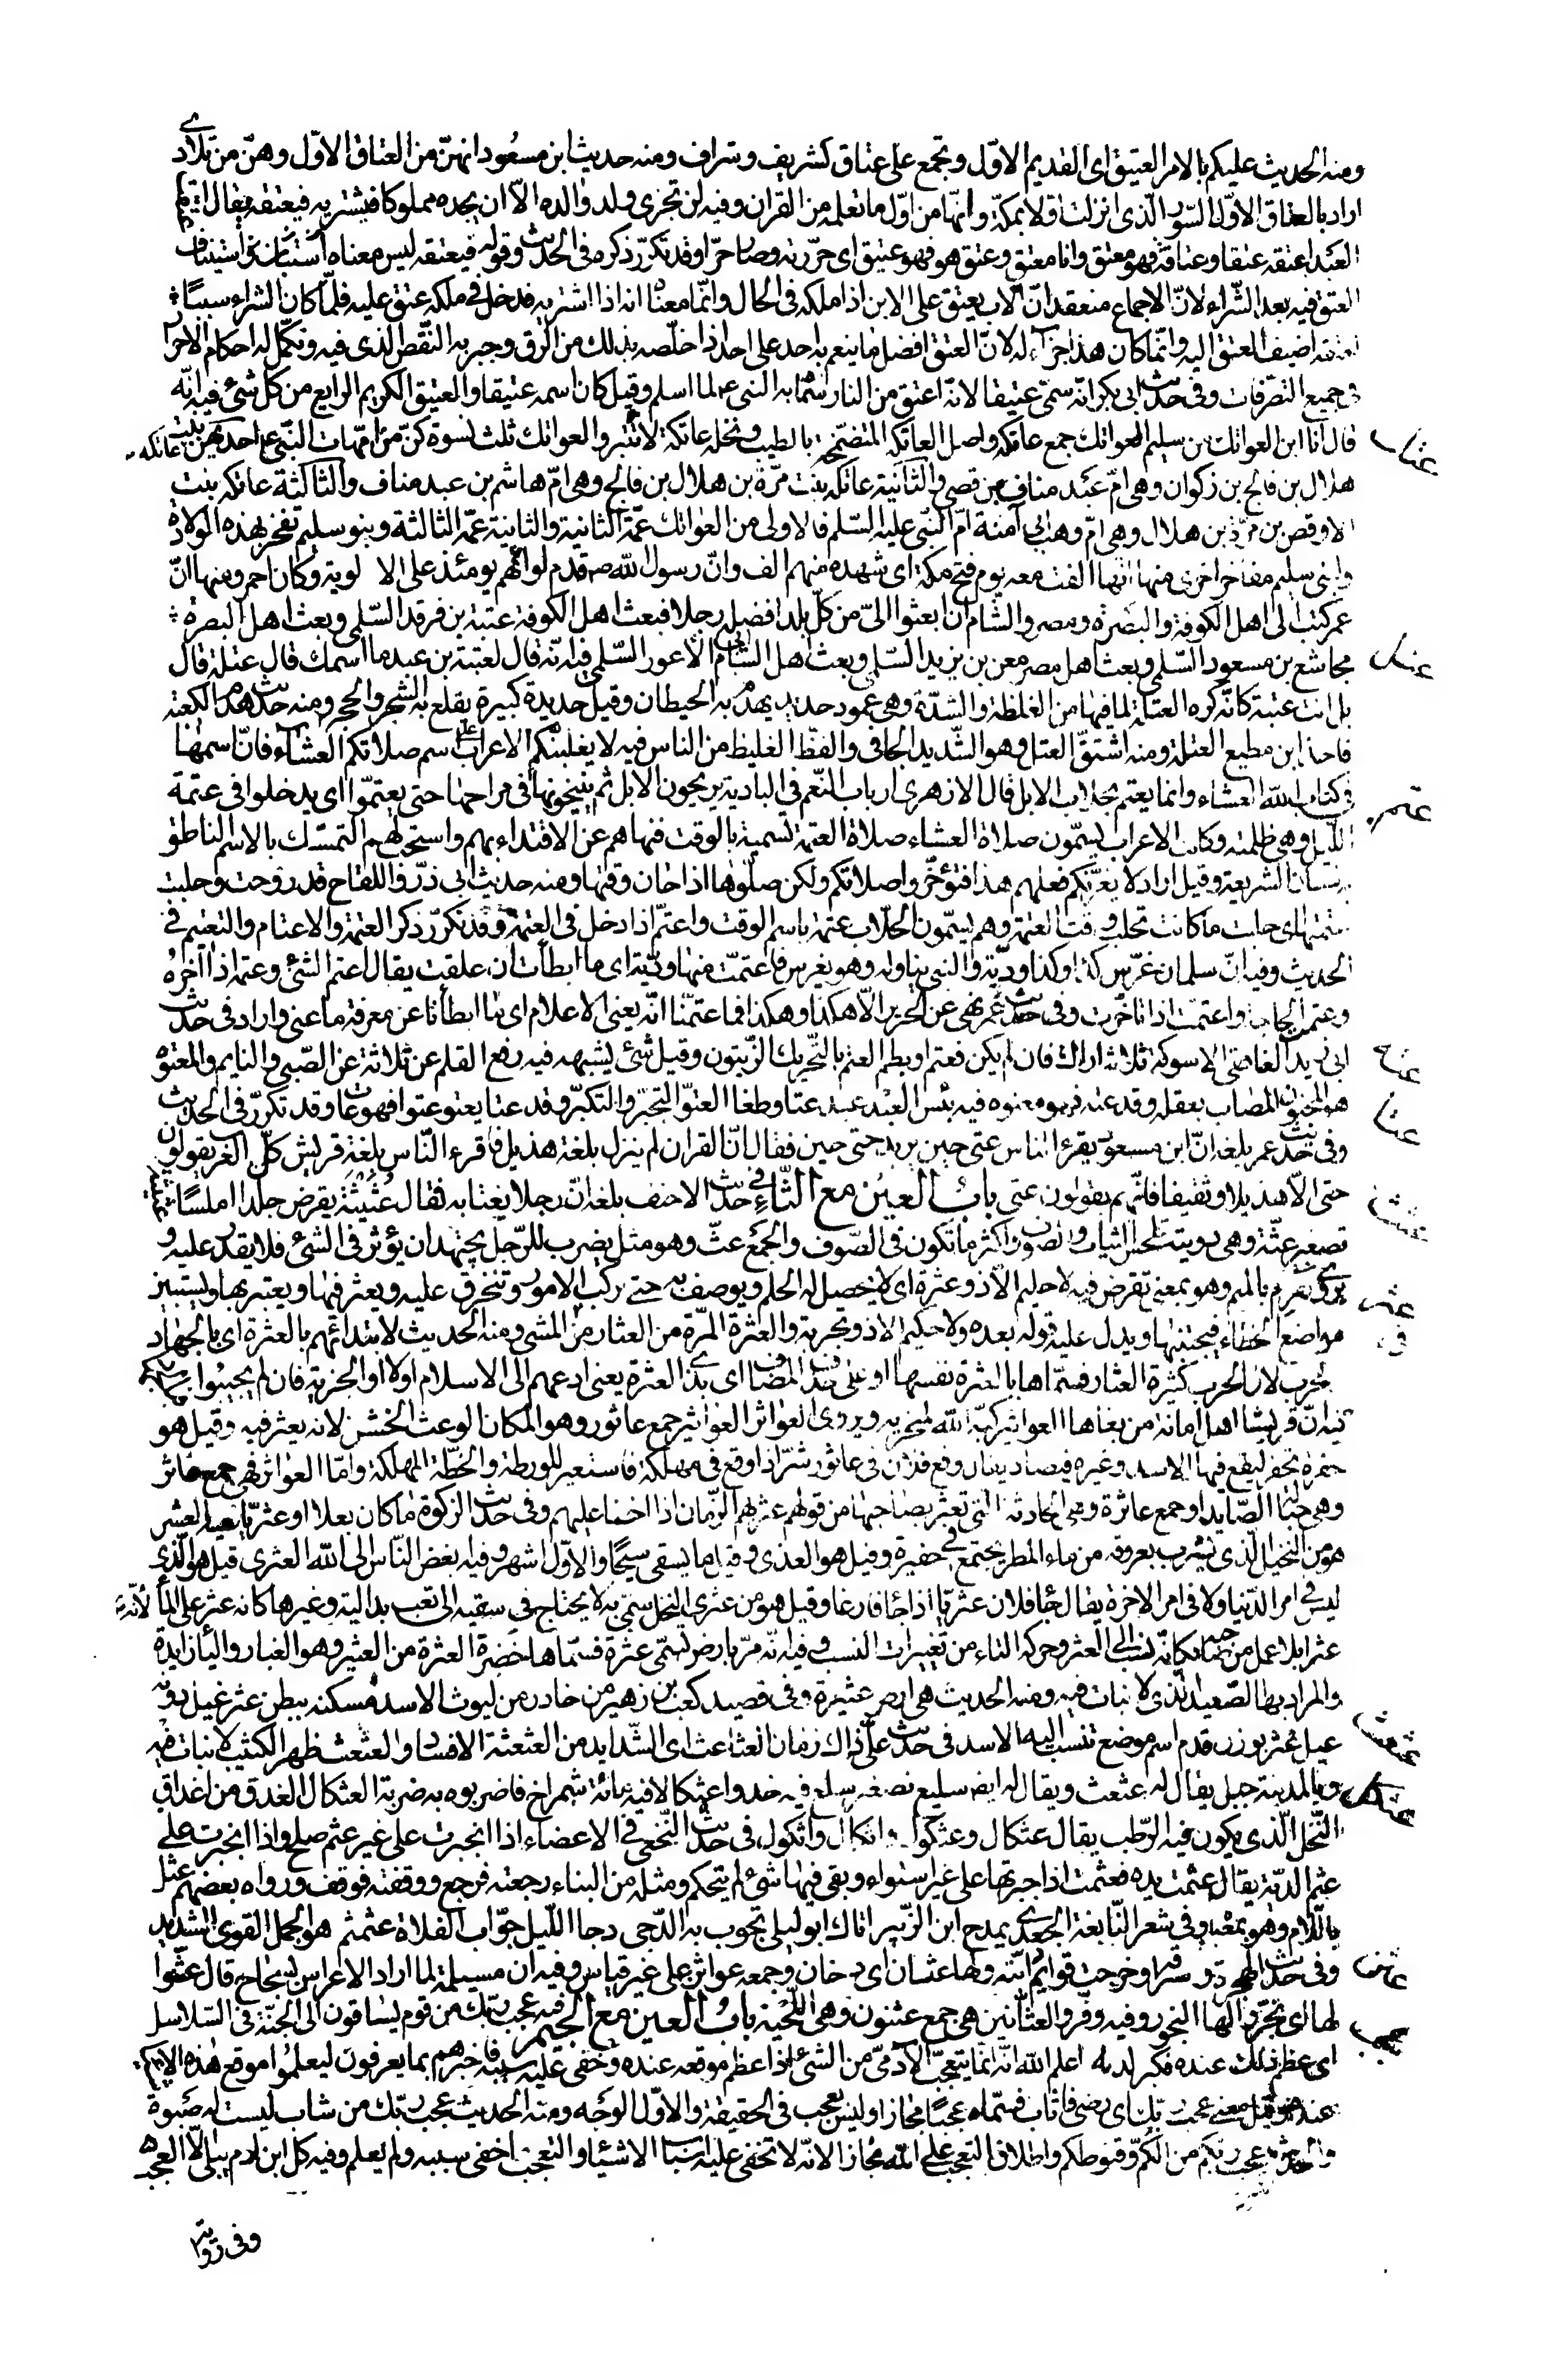 ومنه الحديث عليكم بالامر العتيق اى القديم الاوّل وتجمع على عتاق كشريف وشراف ومنه حديث ابن مسعود انهنّ من العتاق الاوّل وهنّ من تلادى
اراد بالعتاق الاوّل السّور الّذى انزلت اوّلا بمكّة وانّها من اوّل ما تعلمه من القران وفيه لن تجزى ولد والده الّا ان يجده مملوكا فيشتريه فيعتقه يقال
العبد اعتقه عتقا وعتاقة فهو معتق وانا معتق وعتق هو فهو عتيق اى حرّرته وصار حرّا وقد تكرّر ذكره فى الحديث وقوله فيعتقه ليس معناه استيناف
العتق فيه بعد الشّراء لانّ الاجماع منعقد انّ الاب يعتق على الابن اذا ملكه فى الحال وانّما معناه انه اذا اشتريه فدخل فى ملكه عتق عليه فلمّا كان الشراء سببًا
لعتقه اضيف العتق اليه وانّما كان هذا جزآء له لانّ العتق افضل ما ينعم به احد على احد اذا خلّصه بذلك من الرّق وجبر به النّقص الذى فيه وتكمّل له احكام الاحرار
فى جميع التصرّفات وفى حديث ابى بكر انّه سمّى عتيقا لانّه اعتق من النار سمّاه به النبى ع لما اسلم وقيل كان اسمه عتيقا والعتيق الكريم الرايع من كل شئ فيه انّه
عتك
قال انا ابن العواتك من سليم العواتك جمع عاتكه واصل العاتكه المتضمّخة بالطيب ونخله عاتكة لا تأتبر والعواتك ثلث نسوة كنّ من امّهات النّبى ع احديهنّ عاتكه بنت
هلال بن فالج بن ذكوان وهى امّ عبد مناف بن قصى والثّانية عاتكه بنت مرّة بن هلال بن فالج وهى امّ هاشم بن عبد مناف والثّالثة عاتكه بنت
الاوقص بن مرّة بن هلال وهى امّ وهب ابى آمنة امّ النّبى عليه السّلم فالاولى من العواتك عمّة الثانية والثانية عمّة الثالثة وبنو سليم تفخر بهذه الولادة
ولبنى سليم مفاخر اخرى منها انّها الفت معه يوم فتح مكّة اى شهده منهم الف وانّ رسول اللّه ص قدم لوائهم يومئذ على الالوية وكان احمر ومنها انّ
عمر كتب الى اهل الكوفة والبصرة ومصر والشام ان ابعثوا الىّ من كلّ بلد افضله رجلا فبعث اهل الكوفة عتبة بن فرقد السّلمى وبعث اهل البصرة
عتل
مجاشع بن مسعود السّلمى وبعث اهل مصر معن بن يزيد السّلمى وبعث اهل الشام ابى الاعور السّلمى فيه انّه قال لعتبة بن عبد ما اسمك قال عتلة قال
بل انت عتبة كانّه كره العتلة لما فيها من الغلظة والشدّة وهى عمود حديد يهدم به الحيطان وقيل حديدة كبيرة يقلع به الشجر والحجر ومنه حديث هدم الكعبة
فاخذ ابن مطيع العتلة ومنه اشتقّ العتل وهو الشّديد الجافى والفظّ الغليظ من الناس فيه لا يغلبنّكم الاعراب على اسم صلاتكم العشاء فانّ اسمها
عتم
فى كتاب اللّه العشاء وانما يعتم بحلاب الابل قال الازهرى ارباب النّعم فى البادية يريحون الابل ثم ينيخونها فى مراحها حتى يعتمّوا اى يدخلوا فى عتمة
اللّيل وهى ظلمته وكانت الاعراب يسمّون صلاة العشاء صلاة العتمة تسمية بالوقت فنهاهم عن الاقتداء بهم واستحبّ لهم التمسّك بالاسم الناطق
به لسان الشريعة وقيل اراد لا يغرّنكم فعلهم هذا فتؤخّروا صلاتكم ولكن صلّوها اذا حان وقتها ومنه حديث ابى ذرّ واللقاح قد روّحت وحلبت
عتمتها اى حلبت ما كانت تحلب وقت العتمة وهم يسمّون الحلاب عتمة باسم الوقت واعتم اذا دخل فى العتمة وقد تكرّر ذكر العتمة والاعتام والتعتيم فى
الحديث وفيه انّ سلمان غرس كذا وكذا وديّة والنبى يناوله وهو يغرس فما عتمت منها وديّة اى ما ابطأت ان علقت يقال اعتم الشئ وعتمه اذا اخّره
وعتمت الحاجة واعتمت اذا تاخّرت وفى حديث عمر نهى عن الحرير الّا هكذا وهكذا فما عتمنا انّه يعنى الاعلام اى ما ابطأنا عن معرفة ما عنى واراد فى حديث
عته
ابى زيد الغافقى الاسوكة ثلاثة اراك فان لم يكن فعتم او بطم العتم بالتّحريك الزّيتون وقيل شئ يشبهه فيه رفع القلم عن ثلاثة عن الصّبى والنايم والمعتوه
عتا
هو المجنون المصاب بعقله وقد عته فهو معتوه فيه بئس العبد عبد عتا وطغا العتوّ التجبّر والتكبّر وقد عتا يعتو عتوا فهو عات وقد تكرّر فى الحديث
وفى حديث عمر بلغه انّ ابن مسعود يقرء الناس عتى حين يريد حتى حين فقال انّ القران لم ينزل بلغة هذيل فاقرء النّاس بلغة قريش كلّ العرب يقولون
عثث
حتى الّا هذيلا وثقيفا فانّهم يقولون عتى باب العين مع الثّاء فى حديث الاحنف بلغه انّ رجلا يغتابه فقال عُثَيثة يقرض جلدا املسًا
تصغير عثّة وهى دويبّة تلحس الثياب والصوف واكثر ما تكون فى الصّوف والجمع عثّ وهو مثل يضرب للرّجل يجتهد ان يؤثر فى الشئ فلا يقدر عليه و
عثر
يروى تقرم بالميم وهو بمعنى تقرض فيه لا حليم الّا ذو عثرة اى لا يحصل له الحلم ويوصف به حتى يركب الامور وتنخرق عليه ويعثر فيها ويعتبر بها ويستبين
مواضع الخطاء فيجتنبها ويدل عليه قوله بعده ولا حكيم الا ذو تجربة والعثرة المرّة من العثار من المشى ومنه الحديث لا تبتدائهم بالعثرة اى بالجهاد
والحرب لان الحرب كثيرة العثار فسمّاها بالعثرة نفسها او على حذف المضاف اى بذى العثرة يعنى ادعهم الى الاسلام اولا او الجزية فان لم يجيبوا
فيه انّ قريشا اهل امانة من بغاها العواثير كبّه اللّه لمنخريه ويروى العواثر العواثير جمع عاثور وهو المكان الوعث الخشن لانه يعثر فيه وقيل هو
حفرة تحفر ليقع فيها الاسد وغيره فيصاد يقال وقع فلان فى عاثور شرّ اذا وقع فى مهلكة فاستعير للورطة والخطّة المهلكة وامّا العواثر فهى جمع عاثر
وهى حبالة الصّايد او جمع عاثرة وهى الحادثة الّتى تعثر بصاحبها من قولهم عثر بهم الزّمان اذا اخنا عليهم وفى حديث الزكوة ما كان بعلا او عثريّا ففيه العشر
هو من النخيل الّذى يشرب بعروقه من ماء المطر يجتمع فى حفيرة وقيل هو العذى وقيل ما يسقى سيحًا والاوّل اشهر وفيه بغض النّاس الى اللّه العثرى قيل هو الّذى
ليس فى امر الدّنيا ولا فى امر الاخرة يقال جاء فلان عثريّا اذا جاء فارغا وقيل هو من عثرى النخل سمّى به لانه لا يحتاج فى سقيه الى تعب بدالية وغيرها كانه عثر على الماء
عثرا بلا عمل من صاحبه فكانّه نسب الى العثر وحركة الثاء من تغييرات النسب وفيه انّه مرّ بارض تسمّى عثرة فسمّاها خضرة العثرة من العثير وهو الغبار والياء زايدة
والمراد بها الصّعيد الّذى لا نبات فيه ومنه الحديث هى ارض عثيرة وفى قصيد كعب بن زهير من خادر من ليوث الاسد مسكنه ببطن عثر غيل دونه
عثعث
غيل عثر بوزن قدم اسم موضع تنسب اليه الاسد فى حديث علىّ ذاك زمان العثاعث اى الشّدايد من العثعثة الافساد والعثعث ظهر الكثيب لا نبات فيه
عثكل
وبالمدينة جبل يقال له عثعث ويقال له ايضا سليع تصغير سلع فيه خذوا عثكالا فيه مائة شمراخ فاضربوه به ضربة العثكال العذق من اعذاق
النّخل الّذى يكون فيه الرّطب يقال عثكال وعثكول واثكال واثكول فى حديث النّخعى فى الاعضاء اذا انجبرت على غير عثم صلح واذا انجبرت على
عثم الدّية يقال عثمت يده فعثمت اذا جبرتها على غير استواء وبقى فيها شئ لم يتحكم ومثله من البناء رجعته فرجع ووقفته فوقف ورواه بعضهم عثل
باللّام وهو بمعناه وفى شعر النّابغة الجعدى يمدح ابن الزّبير اتاك ابو ليلى تجوب به الدّجى دجا اللّيل جوّاب الفلاة عثمثم هو الجمل القوى الشديد
عثن
وفى حديث الهجرة وسراقة وخرجت قوايم دابّته ولها عثان اى دخان وجمعه عواثن على غير قياس وفيه ان مسيلمة لما اراد الاعراس بسجاح قال عثّنوا
عجب
لها اى بخّروا لها البخور وفيه وفّروا العثانين هى جمع عثنون وهى اللّحية باب العين مع الجيم فيه عجب ربّك من قوم يساقون الى الجنّة فى السّلاسل
اى عظم ذلك عنده وكبر لديه اعلم اللّه انّه انّما يتعجّب الآدمىّ من الشئ اذا عظم موقعه عنده وخفى عليه سببه فاخبرهم بما يعرفون ليعلموا موقع هذه الاشياء
عنده وقيل معنى عجب ربّك اى رضى فاثاب فسمّاه عجبًا مجازا وليس بعجب فى الحقيقة والاوّل الوجه ومنه الحديث عجب ربّك من شاب ليست له صبوة
والحديث عجب ربكم من الّكم وقنوطكم واطلاق التعجّب على اللّه مجازا لانّه لا تخفى عليه اسباب الاشياء والتعجّب ما خفى سببه ولم يعلم وفيه كل ابن ادم يبلى الّا العجب
وفى رواية